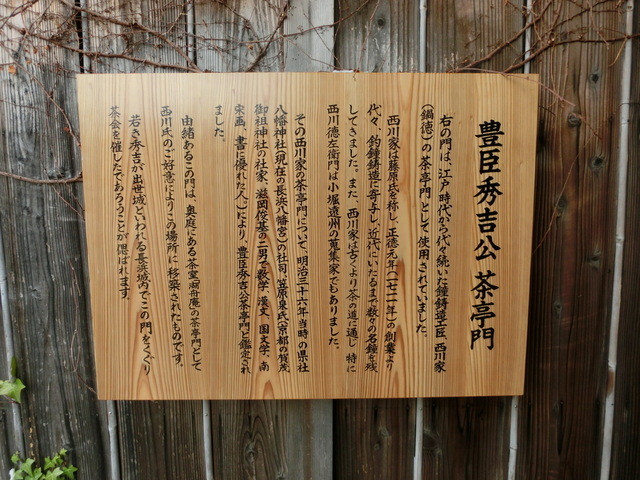 豊臣秀吉公 茶亭門
右の門は、江戸時代から代々続いた鐘鋳造工匠、西川家
(鍋徳)の茶亭門として使用されていました。
西川家は藤原氏を称し、正徳元年(一七一一年)の創業より
代々、釣鐘鋳造に寄与し、近代にいたるまで数々の名鐘を残
してきました。また、西川家は古くより茶の道に通じ、特に
西川徳左衛門は小堀遠州の蒐集家でもありました。
その西川家の茶亭門について、明治三十六年当時の県社
八幡神社(現在の長浜八幡宮)の社司、笠原泉氏(京都の賀茂
御祖神社の社家、滋岡俊基の二男で数学、漢文、国文学、南
宋画、書に優れた人)により、豊臣秀吉公茶亭門と鑑定され
ました。
由緒あるこの門は、奥庭にある茶室 舟庵の茶亭門として
西川氏のご好意によりこの場所に移築されたものです。
若き秀吉が出世城といわれる長浜城内でこの門をくぐり
茶会を催したであろうことが偲ばれます。